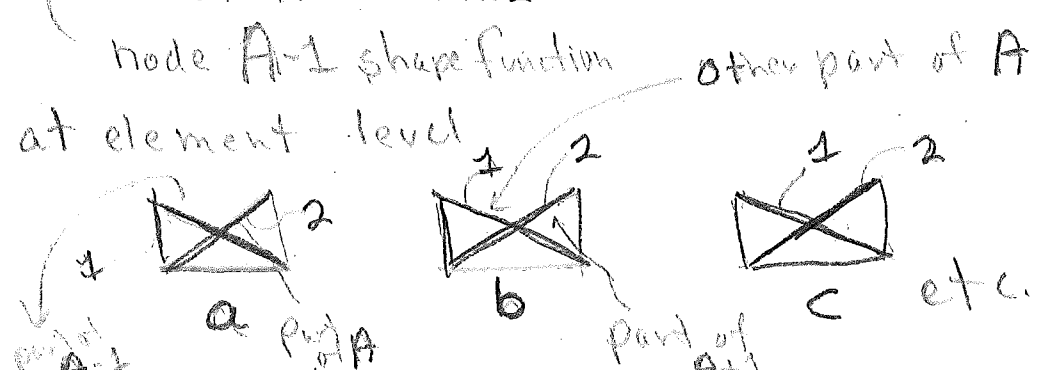 node A-1 shape function
other part of A
at element level
1 2 1 2
1 2
a b c etc.
part of part part of
A-1 of A A+1